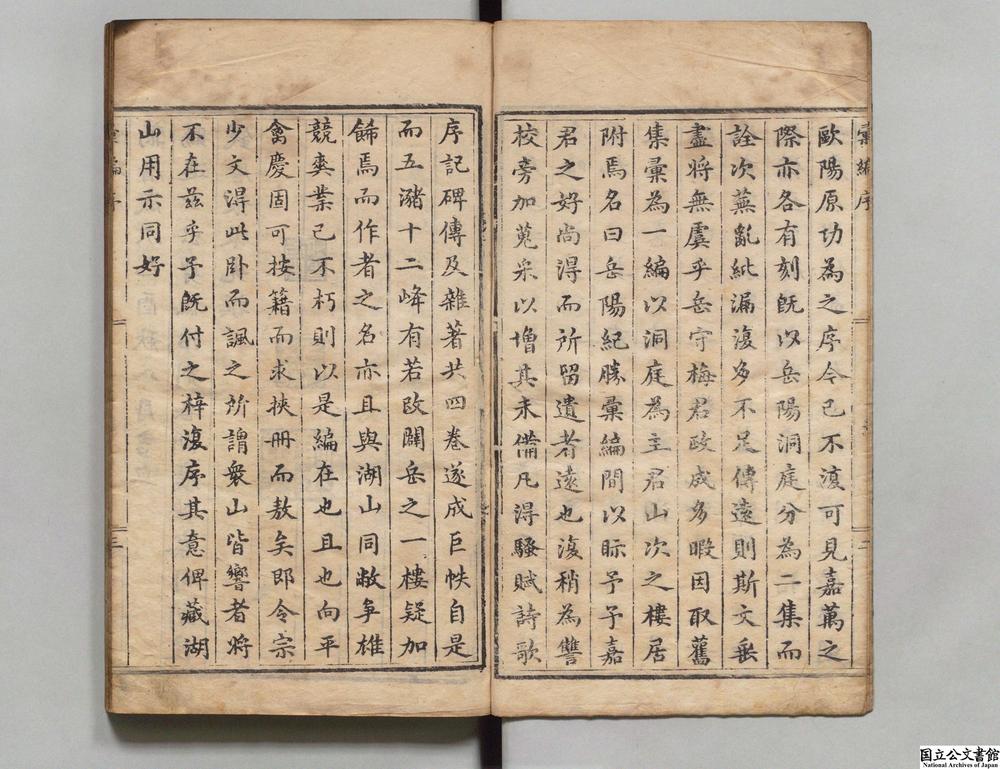 彙編序
二
歐陽原功為之序今已不復可見嘉萬之
際亦各有刻既以岳陽洞庭分為二集而
詮次蕪亂紕漏復多不足傳遠則斯文垂
盡將無虞乎岳守梅君政成多暇因取舊
集彙為一編以洞庭為主君山次之樓居
附焉名曰岳陽紀勝彙編間以眎予予嘉
君之好尚得而所留遺者遠也復稍為讐
校旁加蒐采以增其未備凡得騷賦詩歌
序記碑傳及雜著共四卷遂成巨帙自是
而五瀦十二峰有若改闢岳之一樓疑加
餙焉而作者之名亦且與湖山同敝爭雄
競爽業已不朽則以是編在也且也向平
禽慶固可按籍而求挾冊而敖矣即令宗
少文淂此卧而諷之所謂衆山皆響者將
不在茲乎予既付之梓復序其意俾藏湖
山用示同好
彙編序
三
国立公文書館
National Archives of Japan